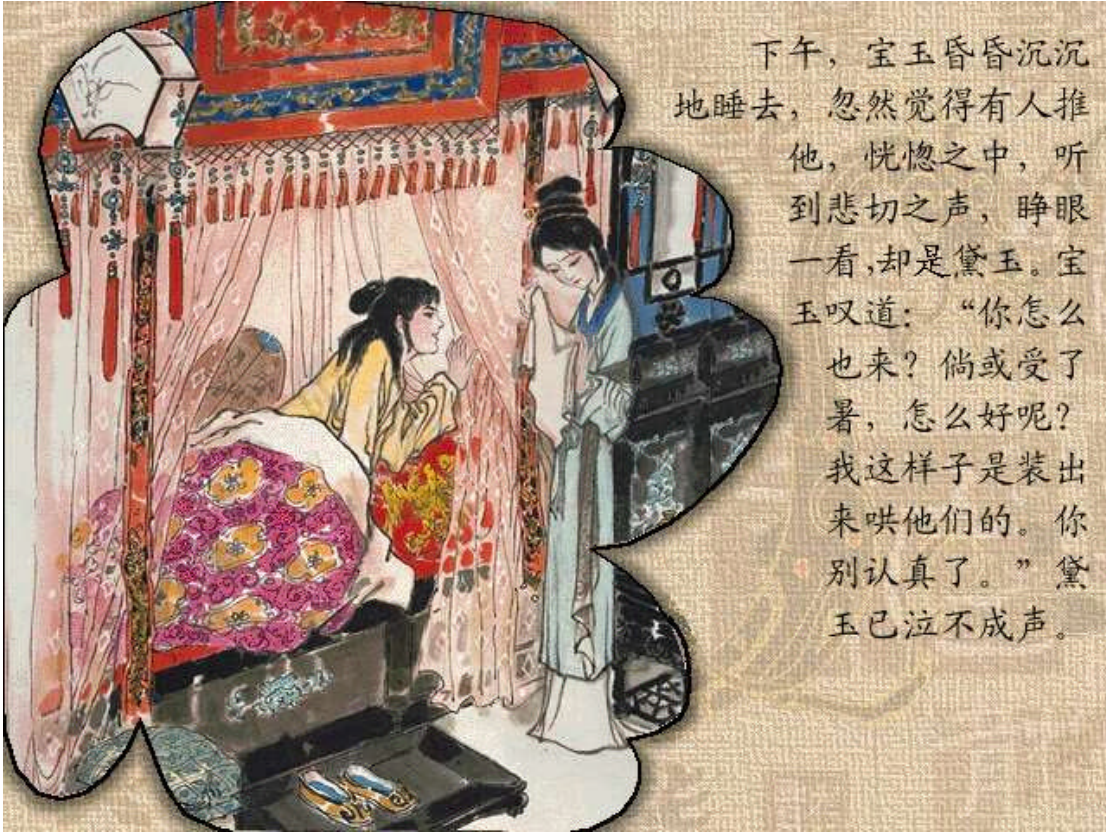 下午，宝玉昏昏沉沉
地睡去，忽然觉得有人推
他，恍惚之中，听
到悲切之声，睁眼
一看，却是黛玉。宝
玉叹道：“你怎么
也来？倘或受了
暑，怎么好呢？
我这样子是装出
来哄他们的。你
别认真了。”黛
玉已泣不成声。